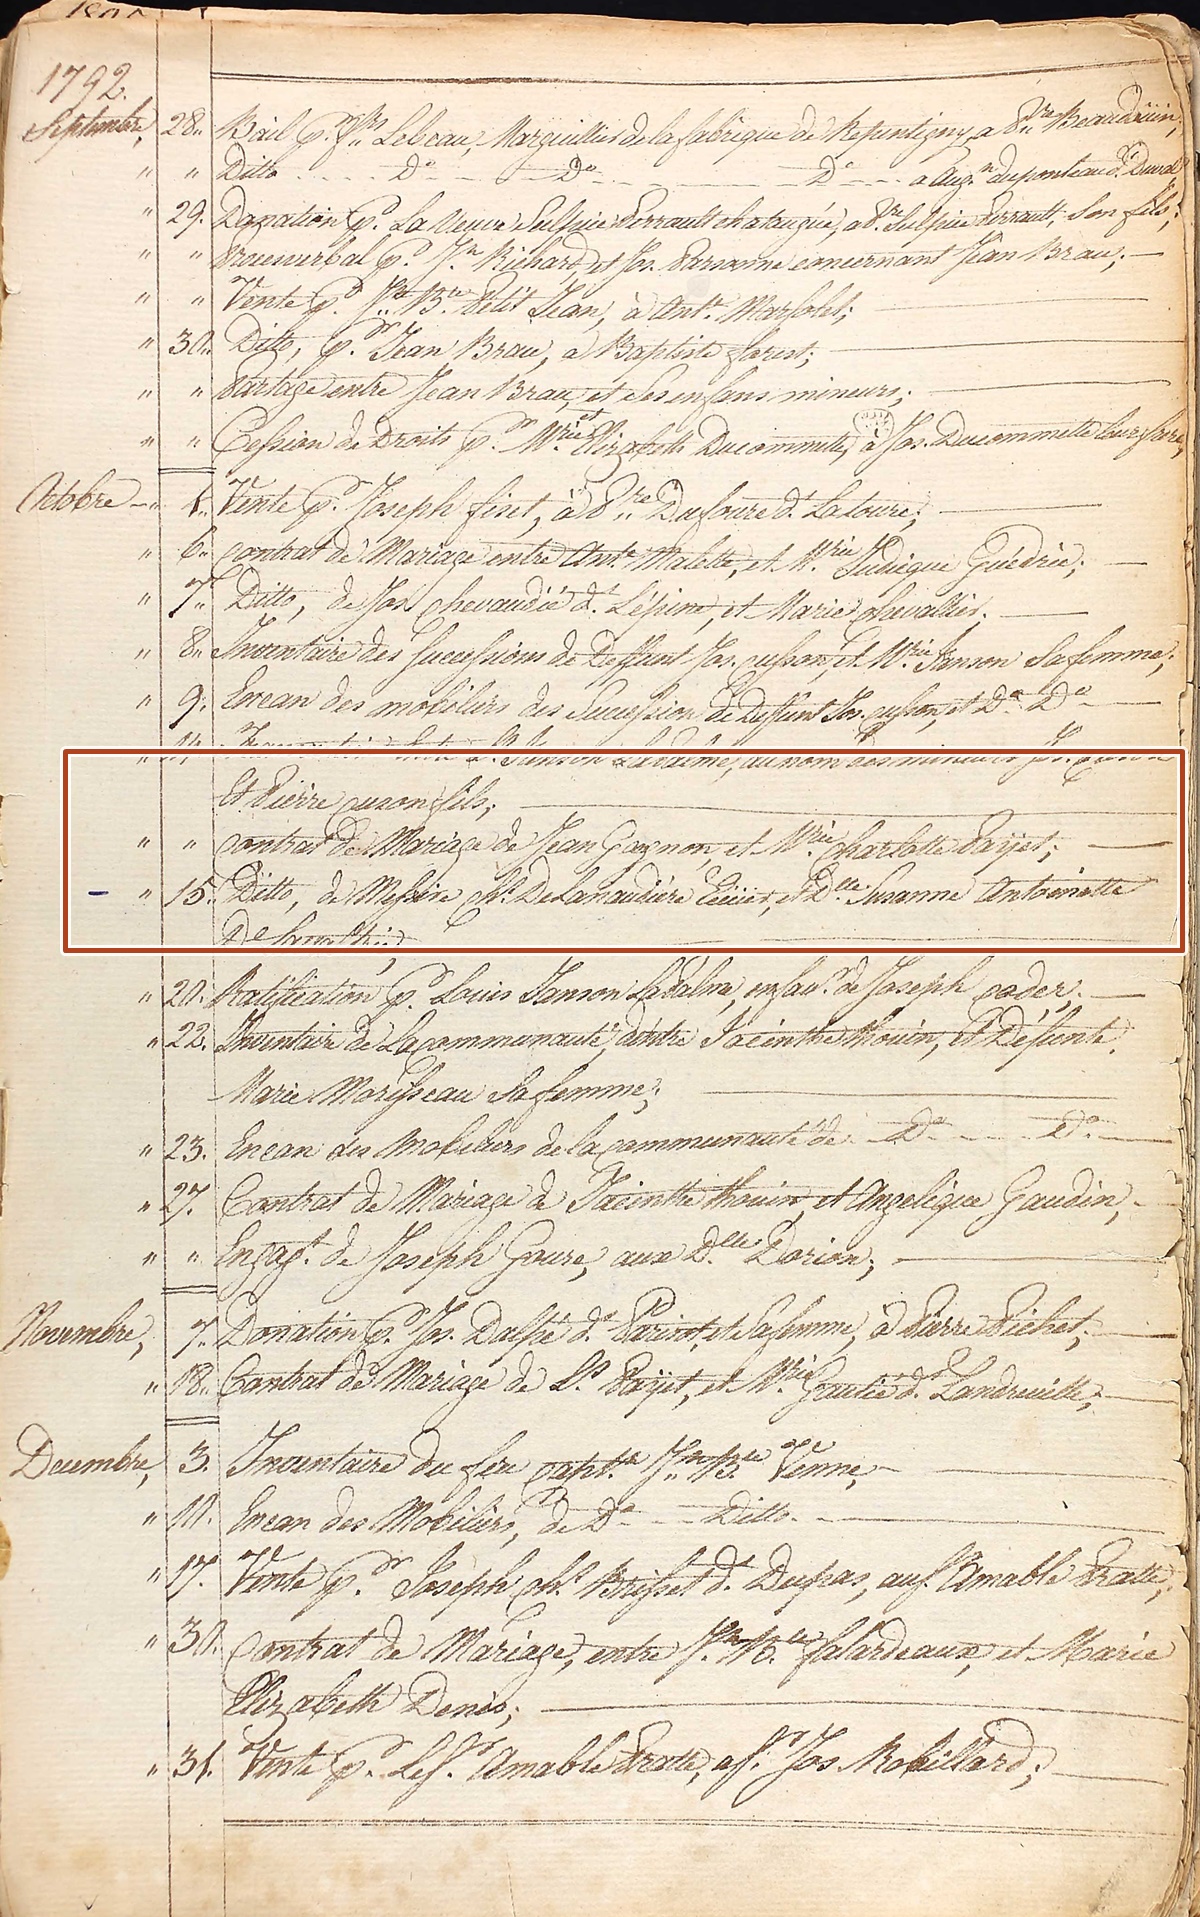 1792.
Septembre, 28.. Bail p. Lebeau, Marguillier de la fabrique de Repentigny, a Beaudouin,
" " Ditto Do Do Do a Aug.n duponteau d.t Duval
" 29. Donation p.r La veuve Sulpice Perrault chateaugué, a P.re Sulpice Perrault, Son fils;
" " Procèsverbal p.r J.n Richard, et Jos. Parsonne concernant Jean Brau;
" " Vente p.r J.n B.te Petit Jean, à Ant.e Marsolet;
" 30. Ditto, p.r Jean Brau, a Baptiste
" " Partage entre Jean Brau, et Ses enfans mineurs;
" " Cession de Droits p.r M.rie et Elizabeth Ducommette, à Jos. Ducommette leur frere,
Octobre " 1. Vente p.r Joseph, à P.re Dufoure d.t Latoure;
" 6.. contrat de Mariage entre Ant.e Malette, et M.rie Judicque Guédrie;
" 7.. Ditto, de Jos. chevaudié d.t Lépine, et Marie chevallier.
" 8.. Inventaire des Successions de Deffunt Jos. cusson, et M.rie Janson Sa femme;
" 9. Encan des mobiliers des Succession de Deffunt Jos. cusson, et Do Do
Janson Lapalme, au nom des mineurs
Et Pierre cuson fils;
" " contrat de Mariage de Jean Gagnon, et M.rie charlotte Payet;
" 15. Ditto, de Messire Ch.s DeLanaudière Ecuier, et D.lle Susanne Antoinette
" 20. Ratification p.r Louis Janson Lapalme, en fav.r de Joseph coder;
" 22. Inventaire de La communauté, d'entre Jacinthe thouin, Et Défunte
Marie Morisseau Sa femme;
" 23. Encan des Mobiliers de la communauté de Do Do
" 27. Contrat de Mariage de Jacinthe thouin, et Angelique Gaudin,
" " Engag.t de Joseph Goure, aux D.lle Dorion;
Novembre, 7. Donation p.r Jos. Dalpé d.t Parisot, et Sa femme, à Pierre Pichet;
" 18.. Contrat de Mariage de L.s Payet, et M.rie Gautié d.t Landreville,
Decembre, 3. Inventaire du feu capt.ne J.n B.te Venne,
" 10. Encan des Mobiliers, de Do Ditto.
" 17. Vente p.r Joseph ch.s Brisset d.t Dupas, au S.r Amable Pratte,
" 30. Contrat de Mariage, entre J.n B.te falardeaux, et Marie
Elizabeth Denis;
" 31. Vente p.r Le S.r Amable Pratte, a S.r Jos Robillard;